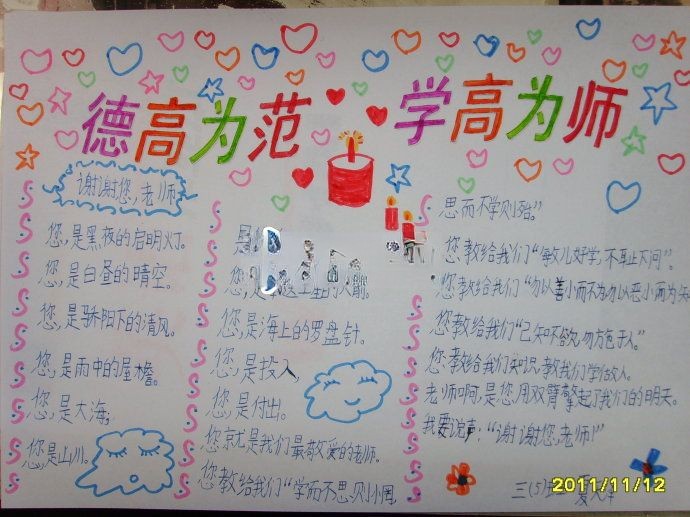 德高为范 学高为师
谢谢您,老师
您,是黑夜的启明灯。
您,是白昼的晴空。
您,是骄阳下的清风。
您,是雨中的屋檐。
您,是大海,
您是山川。
您,是
您,是海上的罗盘针。
您,是投入,
您,是付出。
您就是我们最敬爱的老师。
您教给我们“学而不思则罔
思而不学则殆”。
您教给我们“敏儿好学,不耻下问”。
您教给我们“勿以善小而不为勿以恶小而为
您教给我们“己知不欲勿施于人”
您教给我们知识,教我们学做人。
老师啊,是您,用双臂擎起了我们的明天。
我要说声,“谢谢您,老师!”
三(5)
2011/11/12